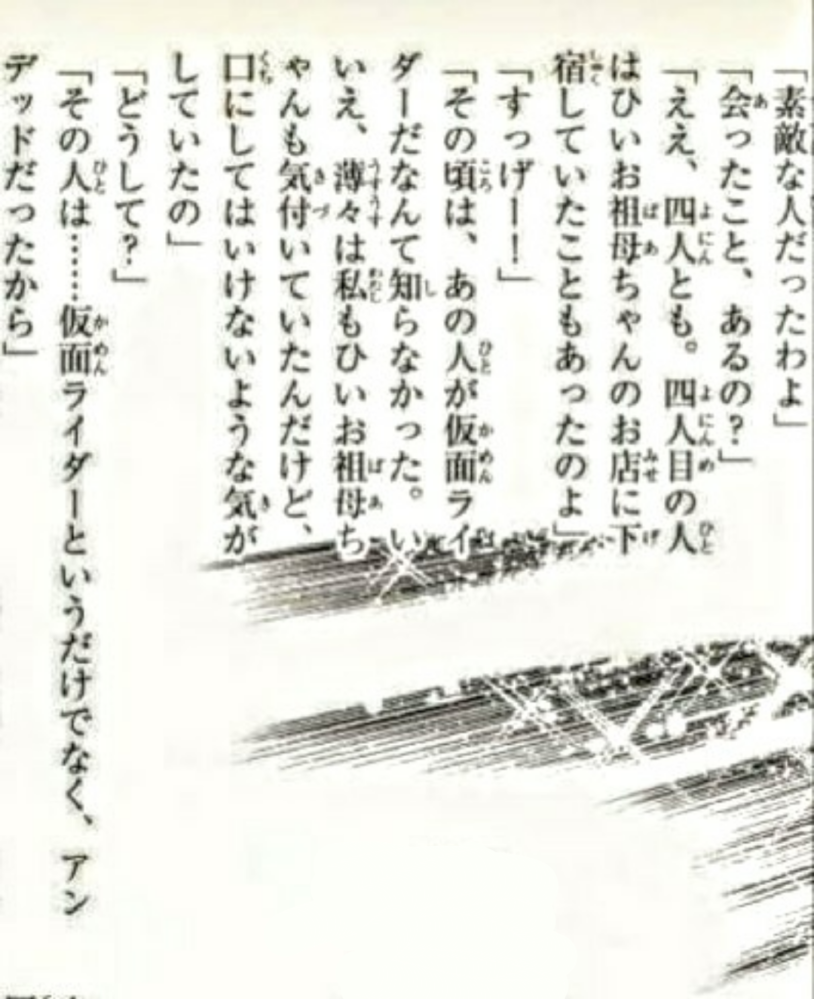 「素敵な人だったわよ」
「会ったこと、あるの？」
「ええ、四人とも。四人目の人
はひいお祖母ちゃんのお店に下
宿していたこともあったのよ」
「すっげー！」
「その頃は、あの人が仮面ライ
ダーだなんて知らなかった。い
いえ、薄々は私もひいお祖母ち
ゃんも気付いていたんだけど、
口にしてはいけないような気が
していたの」
「どうして？」
「その人は……仮面ライダーというだけでなく、アン
デッドだったから」